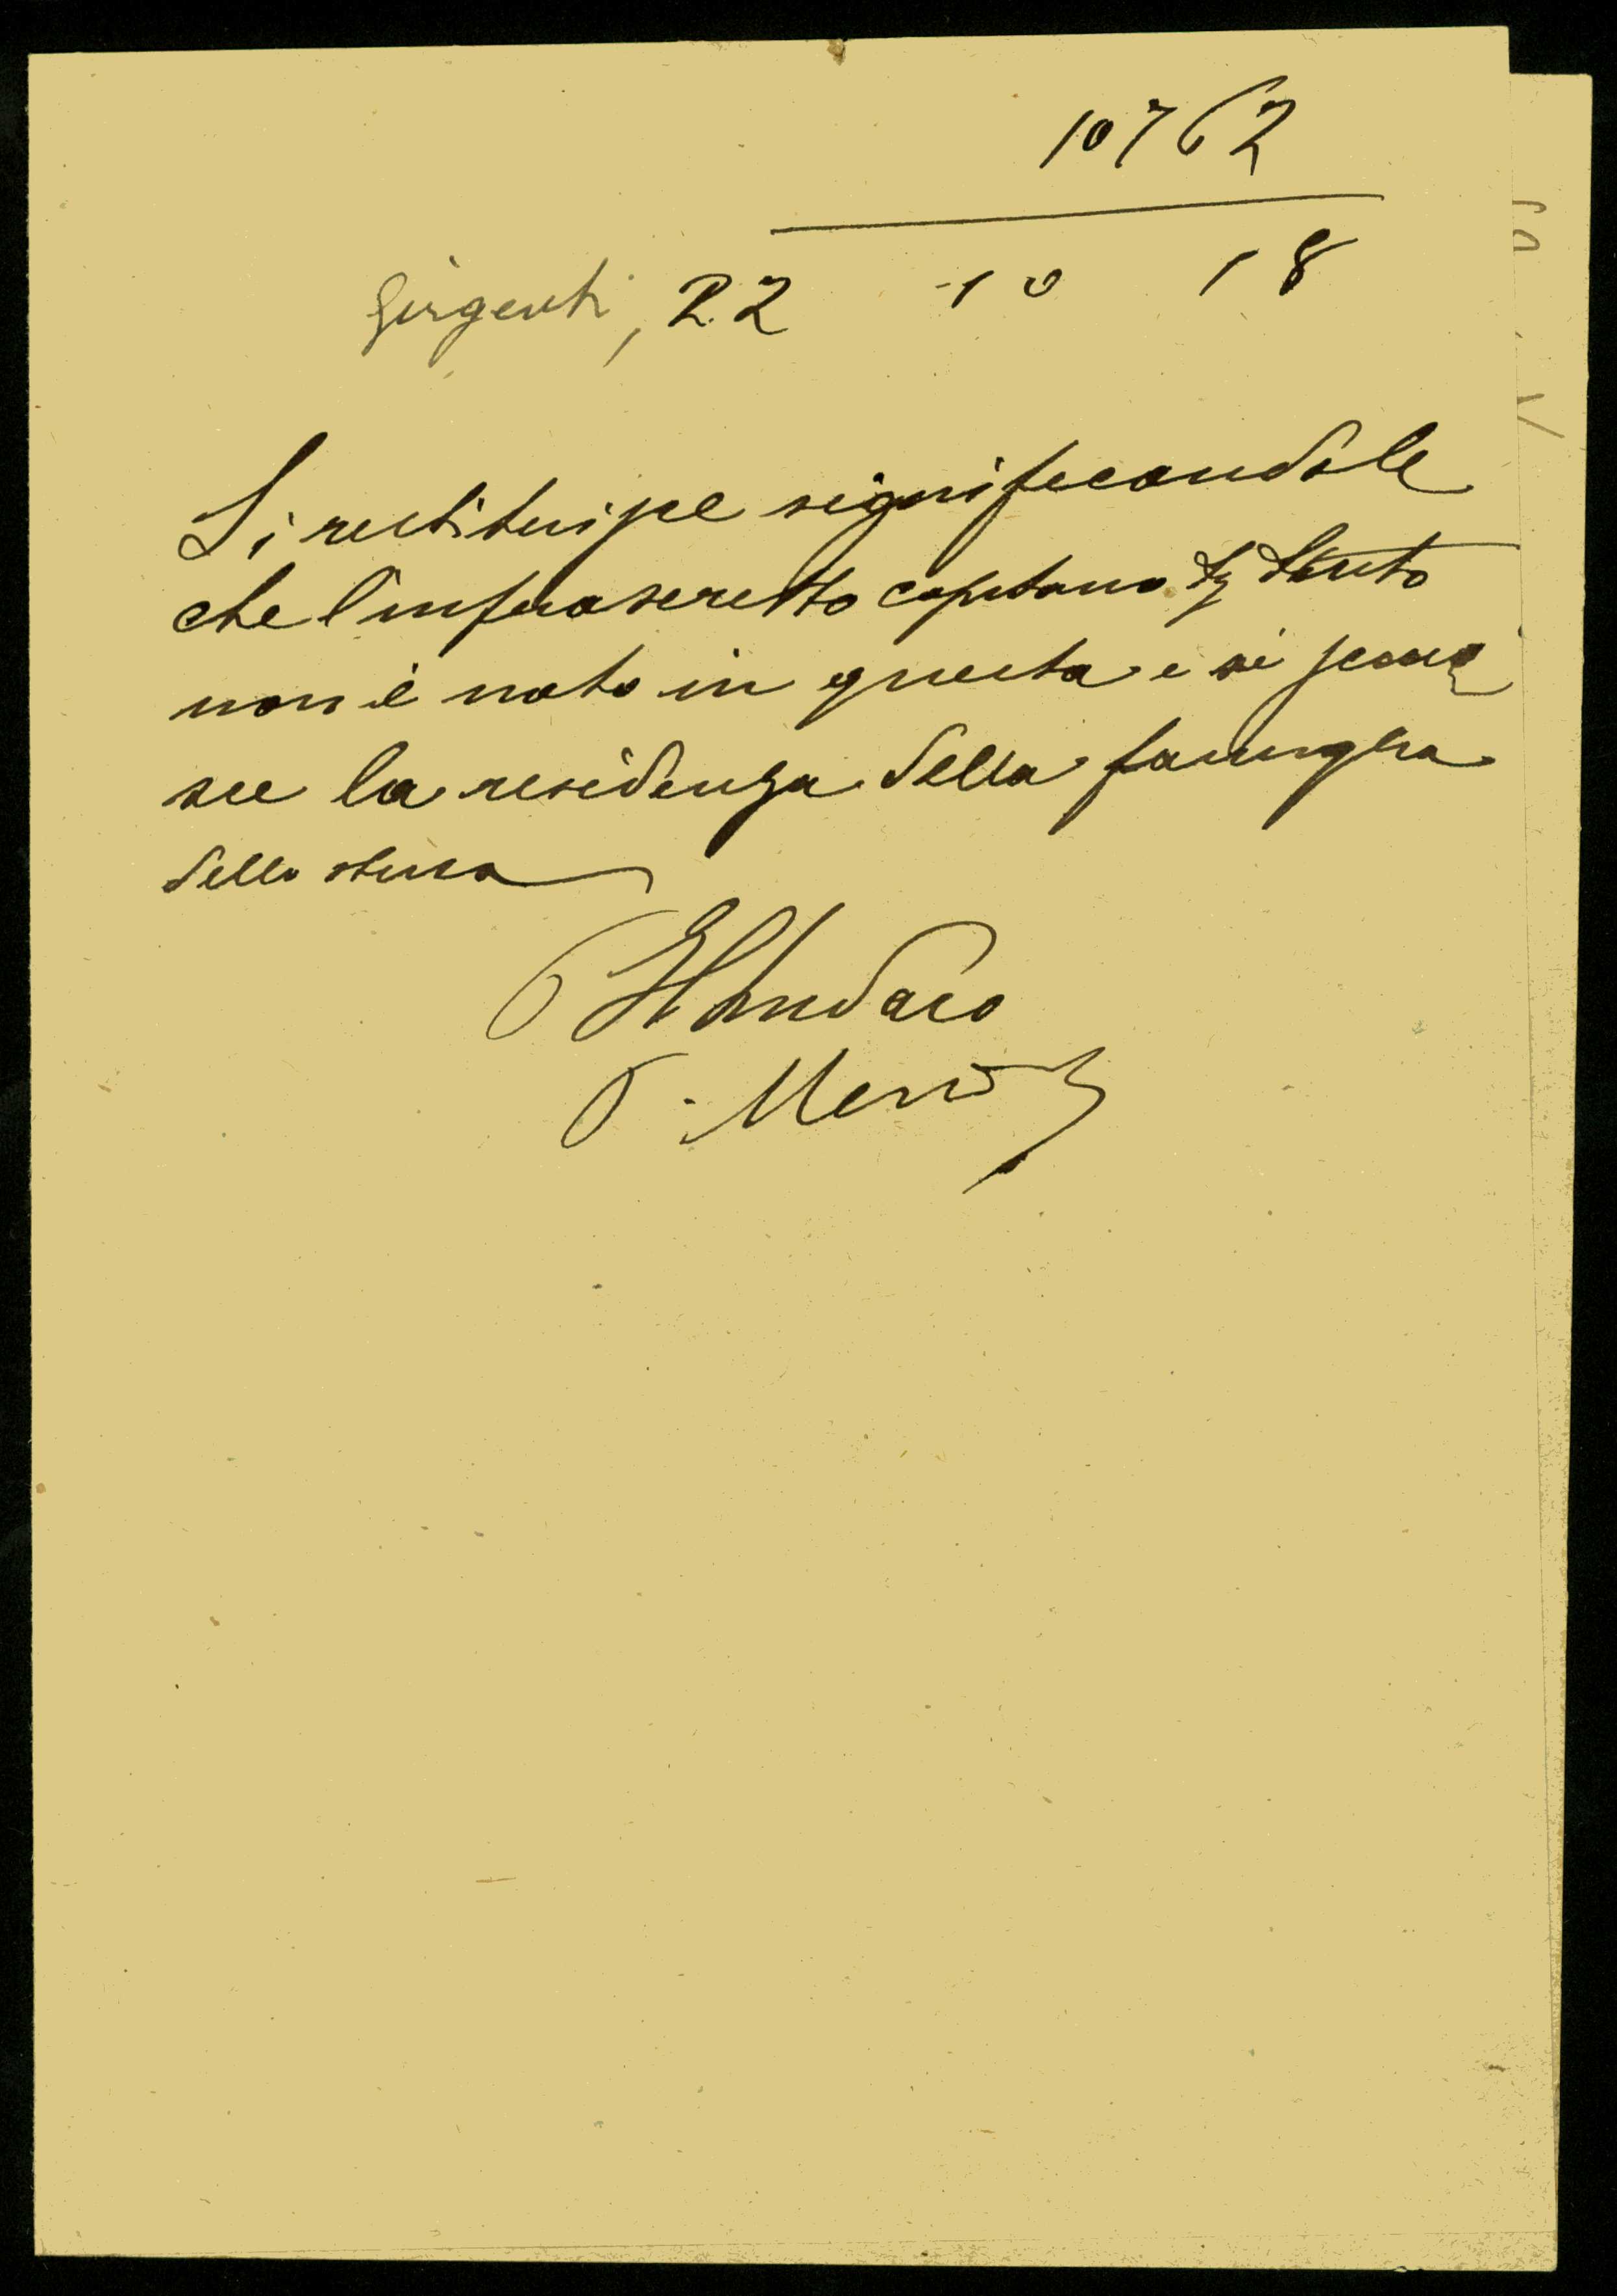 10762
Girgenti, 22 -10 18
Si restituisce significandole
che l'infrascritto capitano
non è nato in questa e si
sce la residenza della famiglia
dello stesso
Il Sindaco